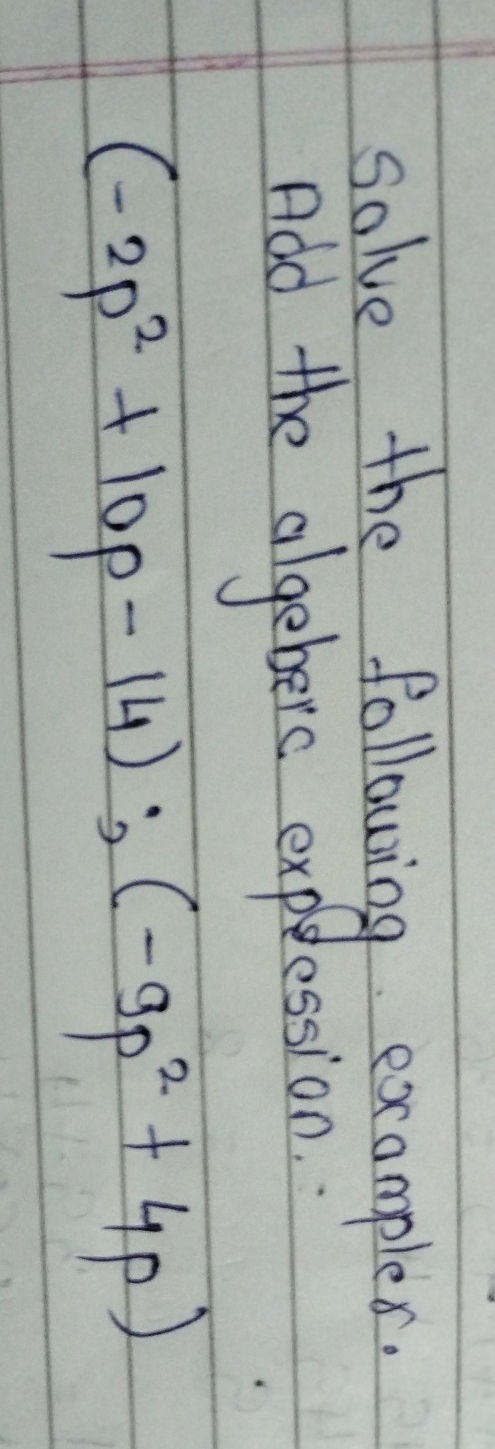 Solve the following example.
Add the algeberic expression.
(-2p² + 10p - 14) ; (-9p² + 4p)